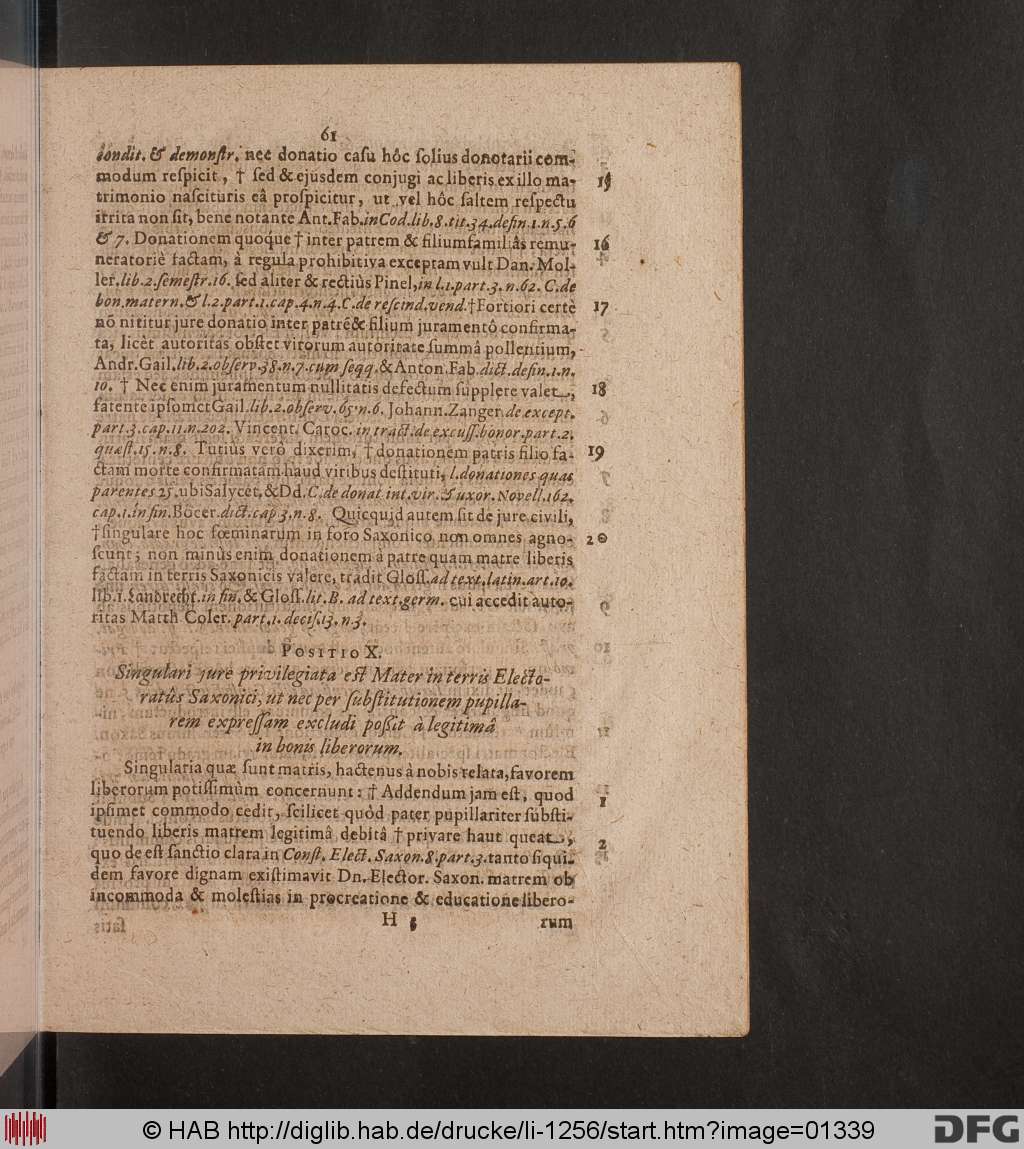 61
condit. & demonstr. nec donatio casu hôc solius donotarii com-
modum respicit, † sed & ejusdem conjugi ac liberis ex illo ma- 15
trimonio nascituris eâ prospicitur, ut vel hôc saltem respectu
irrita non sit, bene notante Ant. Fab. in Cod. lib. 8. tit. 34. defin. 1. n. 5. 6
& 7. Donationem quoque † inter patrem & filiumfamiliâs remu- 16
neratoriè factam, à regula prohibitiva exceptam vult Dan. Mol-
ler. lib. 2. semestr. 16. sed aliter & rectiùs Pinel, in l. 1. part. 3. n. 62. C. de
bon. matern. & l. 2. part. 1. cap. 4. n. 4. C. de rescind. vend. † Fortiori certè 17
nō nititur jure donatio inter patrē & filium juramentô confirma-
ta, licèt autoritas obstet virorum autoritate summâ pollentium,
Andr. Gail. lib. 2. observ. 38. n. 7. cum seqq. & Anton. Fab. dict. defin. 1. n.
10. † Nec enim juramentum nullitatis defectum supplere valet, 18
fatente ipsomet Gail. lib. 2. observ. 65. n. 6. Johann. Zanger. de except.
part. 3. cap. 11. n. 202. Vincent. Caroc. in tract. de excuss. bonor. part. 2.
quæst. 15. n. 8. Tutiùs verò dixerim, † donationem patris filio fa- 19
ctam morte confirmatam haud viribus destituti, l. donationes quas
parentes 25. ubi Salycet. & Dd. C. de donat. int. vir. & uxor. Novell. 162.
cap. 1. in fin. Bocer. dict. cap 3. n. 8. Quicquid autem sit de jure civili,
† singulare hoc fœminarum in foro Saxonico non omnes agno- 20
scunt; non minùs enim donationem à patre quam matre liberis
factam in terris Saxonicis valere, tradit Gloss. ad text. latin. art. 10.
lib. 1. Landrecht. in fin. & Gloss. lit. B. ad text. germ. cui accedit auto-
ritas Matth Coler. part. 1. decis. 13. n. 3.
POSITIO X.
Singulari jure privilegiata est Mater in terris Electo-
ratûs Saxonici, ut nec per substitutionem pupilla-
rem expressam excludi possit à legitimâ
in bonis liberorum.
Singularia quæ sunt matris, hactenus à nobis relata, favorem
liberorum potissimùm concernunt: † Addendum jam est, quod 1
ipsimet commodo cedit, scilicet quòd pater pupillariter substi-
tuendo liberis matrem legitimâ debitâ † privare haut queat, 2
quo de est sanctio clara in Const. Elect. Saxon. 8. part. 3. tanto siqui-
dem favore dignam existimavit Dn. Elector. Saxon. matrem ob
incommoda & molestias in procreatione & educatione libero-
H 3 rum
© HAB http://diglib.hab.de/drucke/li-1256/start.htm?image=01339
DFG